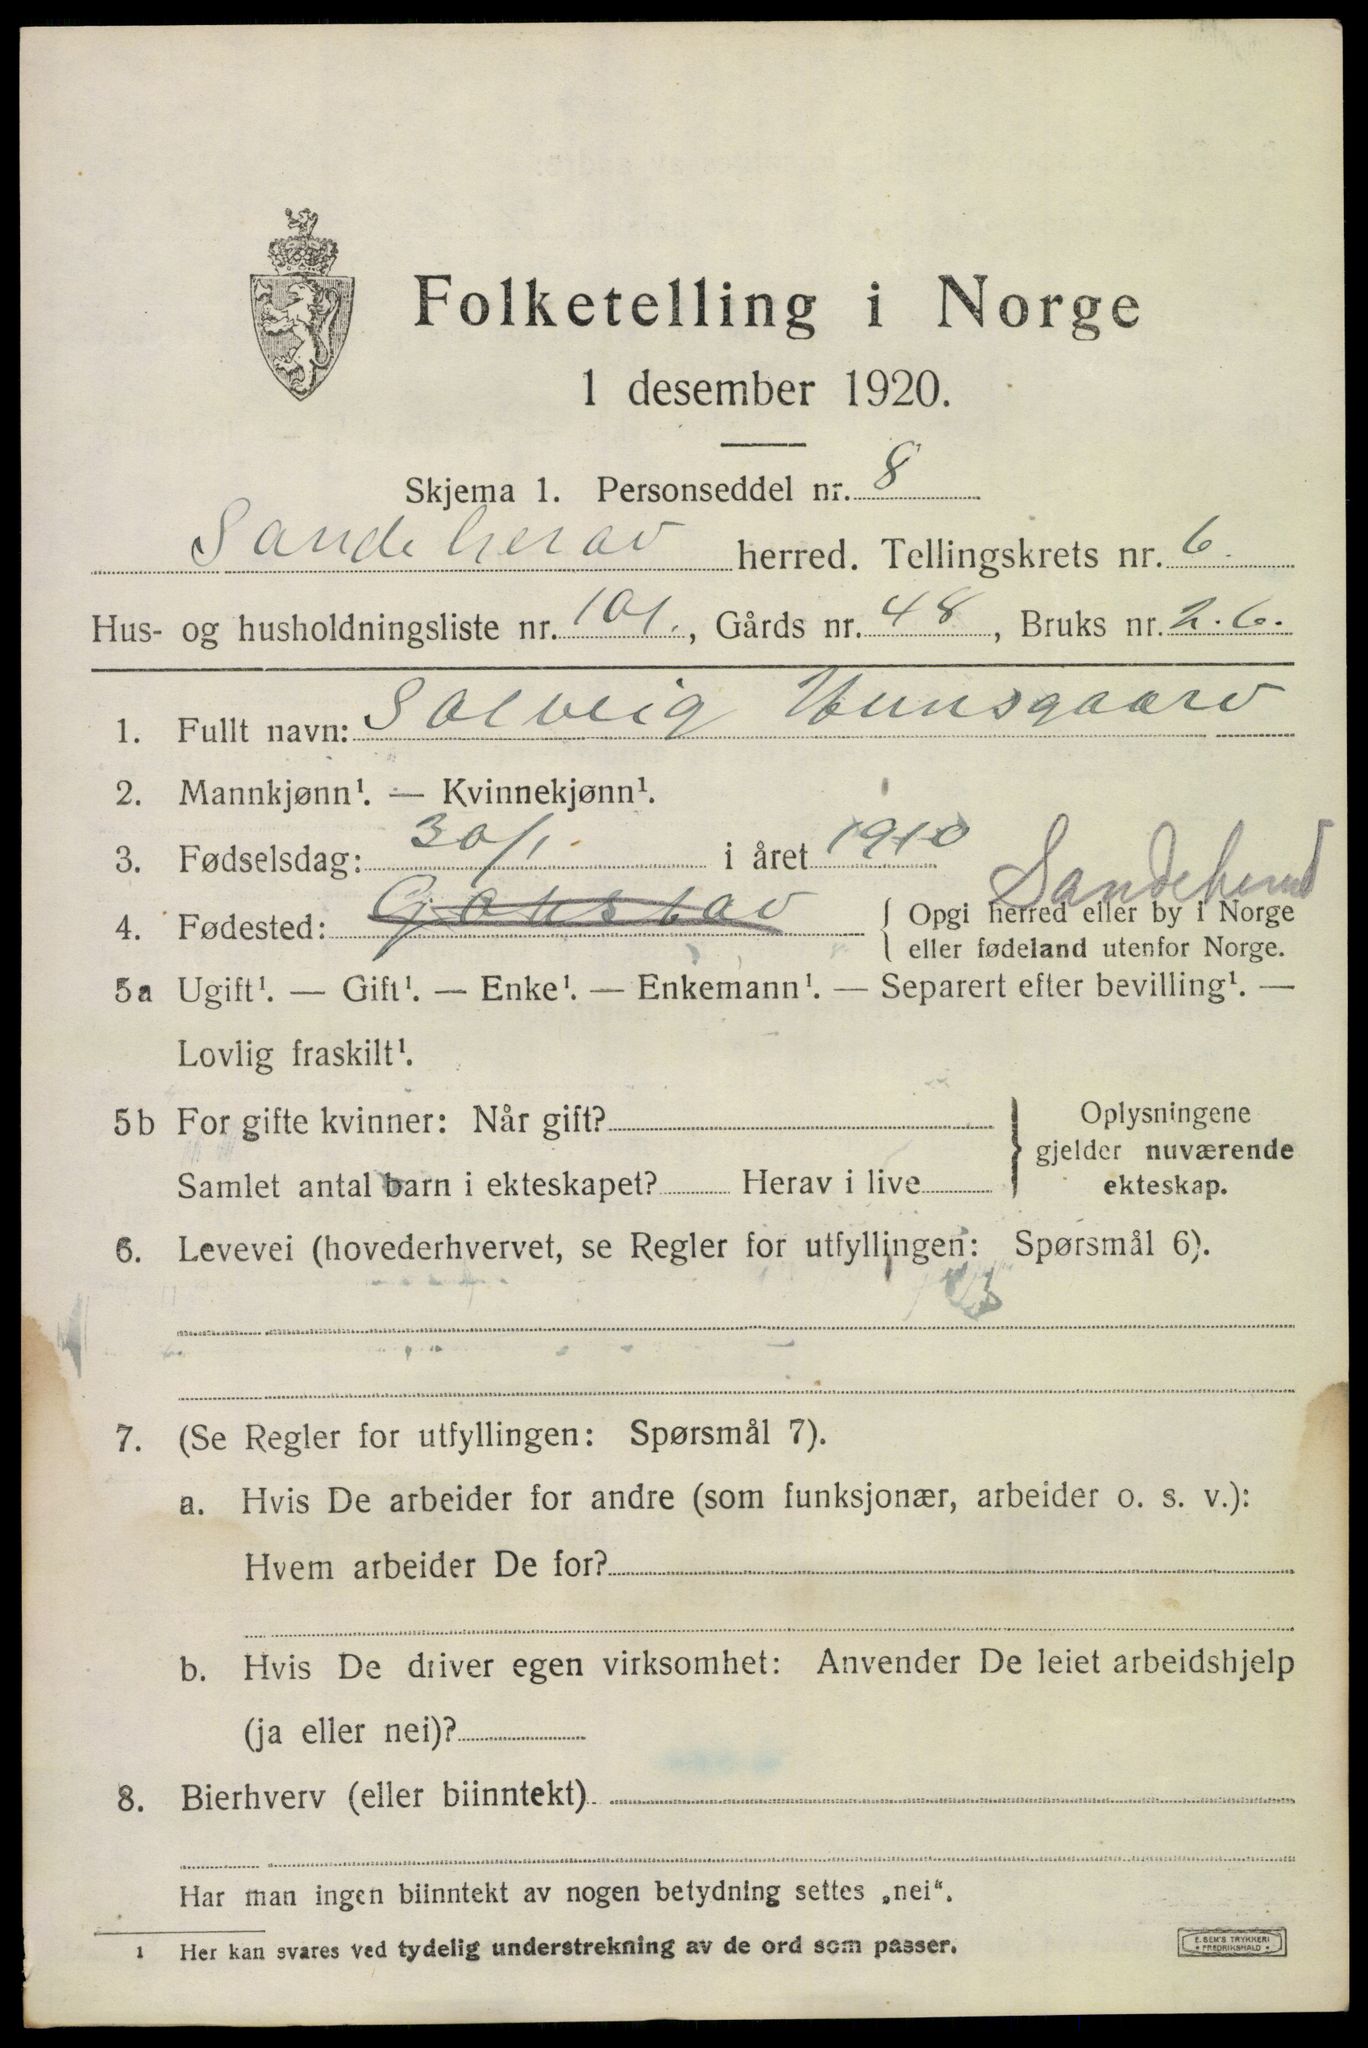 Folketelling i Norge
1 desember 1920.
Skjema 1. Personseddel nr. 8
Sandeherad herred. Tellingskrets nr. 6.
Hus- og husholdningsliste nr. 101., Gårds nr. 48, Bruks nr. 26.
1. Fullt navn: Solveig Hunsgaard
2. Mannkjønn¹. — Kvinnekjønn¹.
3. Fødselsdag: 30/1 i året 1910
Sandeherad
4. Fødested: { Opgi herred eller by i Norge
eller fødeland utenfor Norge.
5a Ugift¹. — Gift¹. — Enke¹. — Enkemann¹. — Separert efter bevilling¹. —
Lovlig fraskilt¹.
5b For gifte kvinner: Når gift? } Oplysningene
gjelder nuværende
Samlet antal barn i ekteskapet? Herav i live ekteskap.
6. Levevei (hovederhvervet, se Regler for utfyllingen: Spørsmål 6).
7. (Se Regler for utfyllingen: Spørsmål 7).
a. Hvis De arbeider for andre (som funksjonær, arbeider o. s. v.):
Hvem arbeider De for?
b. Hvis De driver egen virksomhet: Anvender De leiet arbeidshjelp
(ja eller nei)?
8. Bierhverv (eller biinntekt)
Har man ingen biinntekt av nogen betydning settes „nei“.
1 Her kan svares ved tydelig understrekning av de ord som passer.
E. SEM'S TRYKKERI
* FREDRIKSHALD *